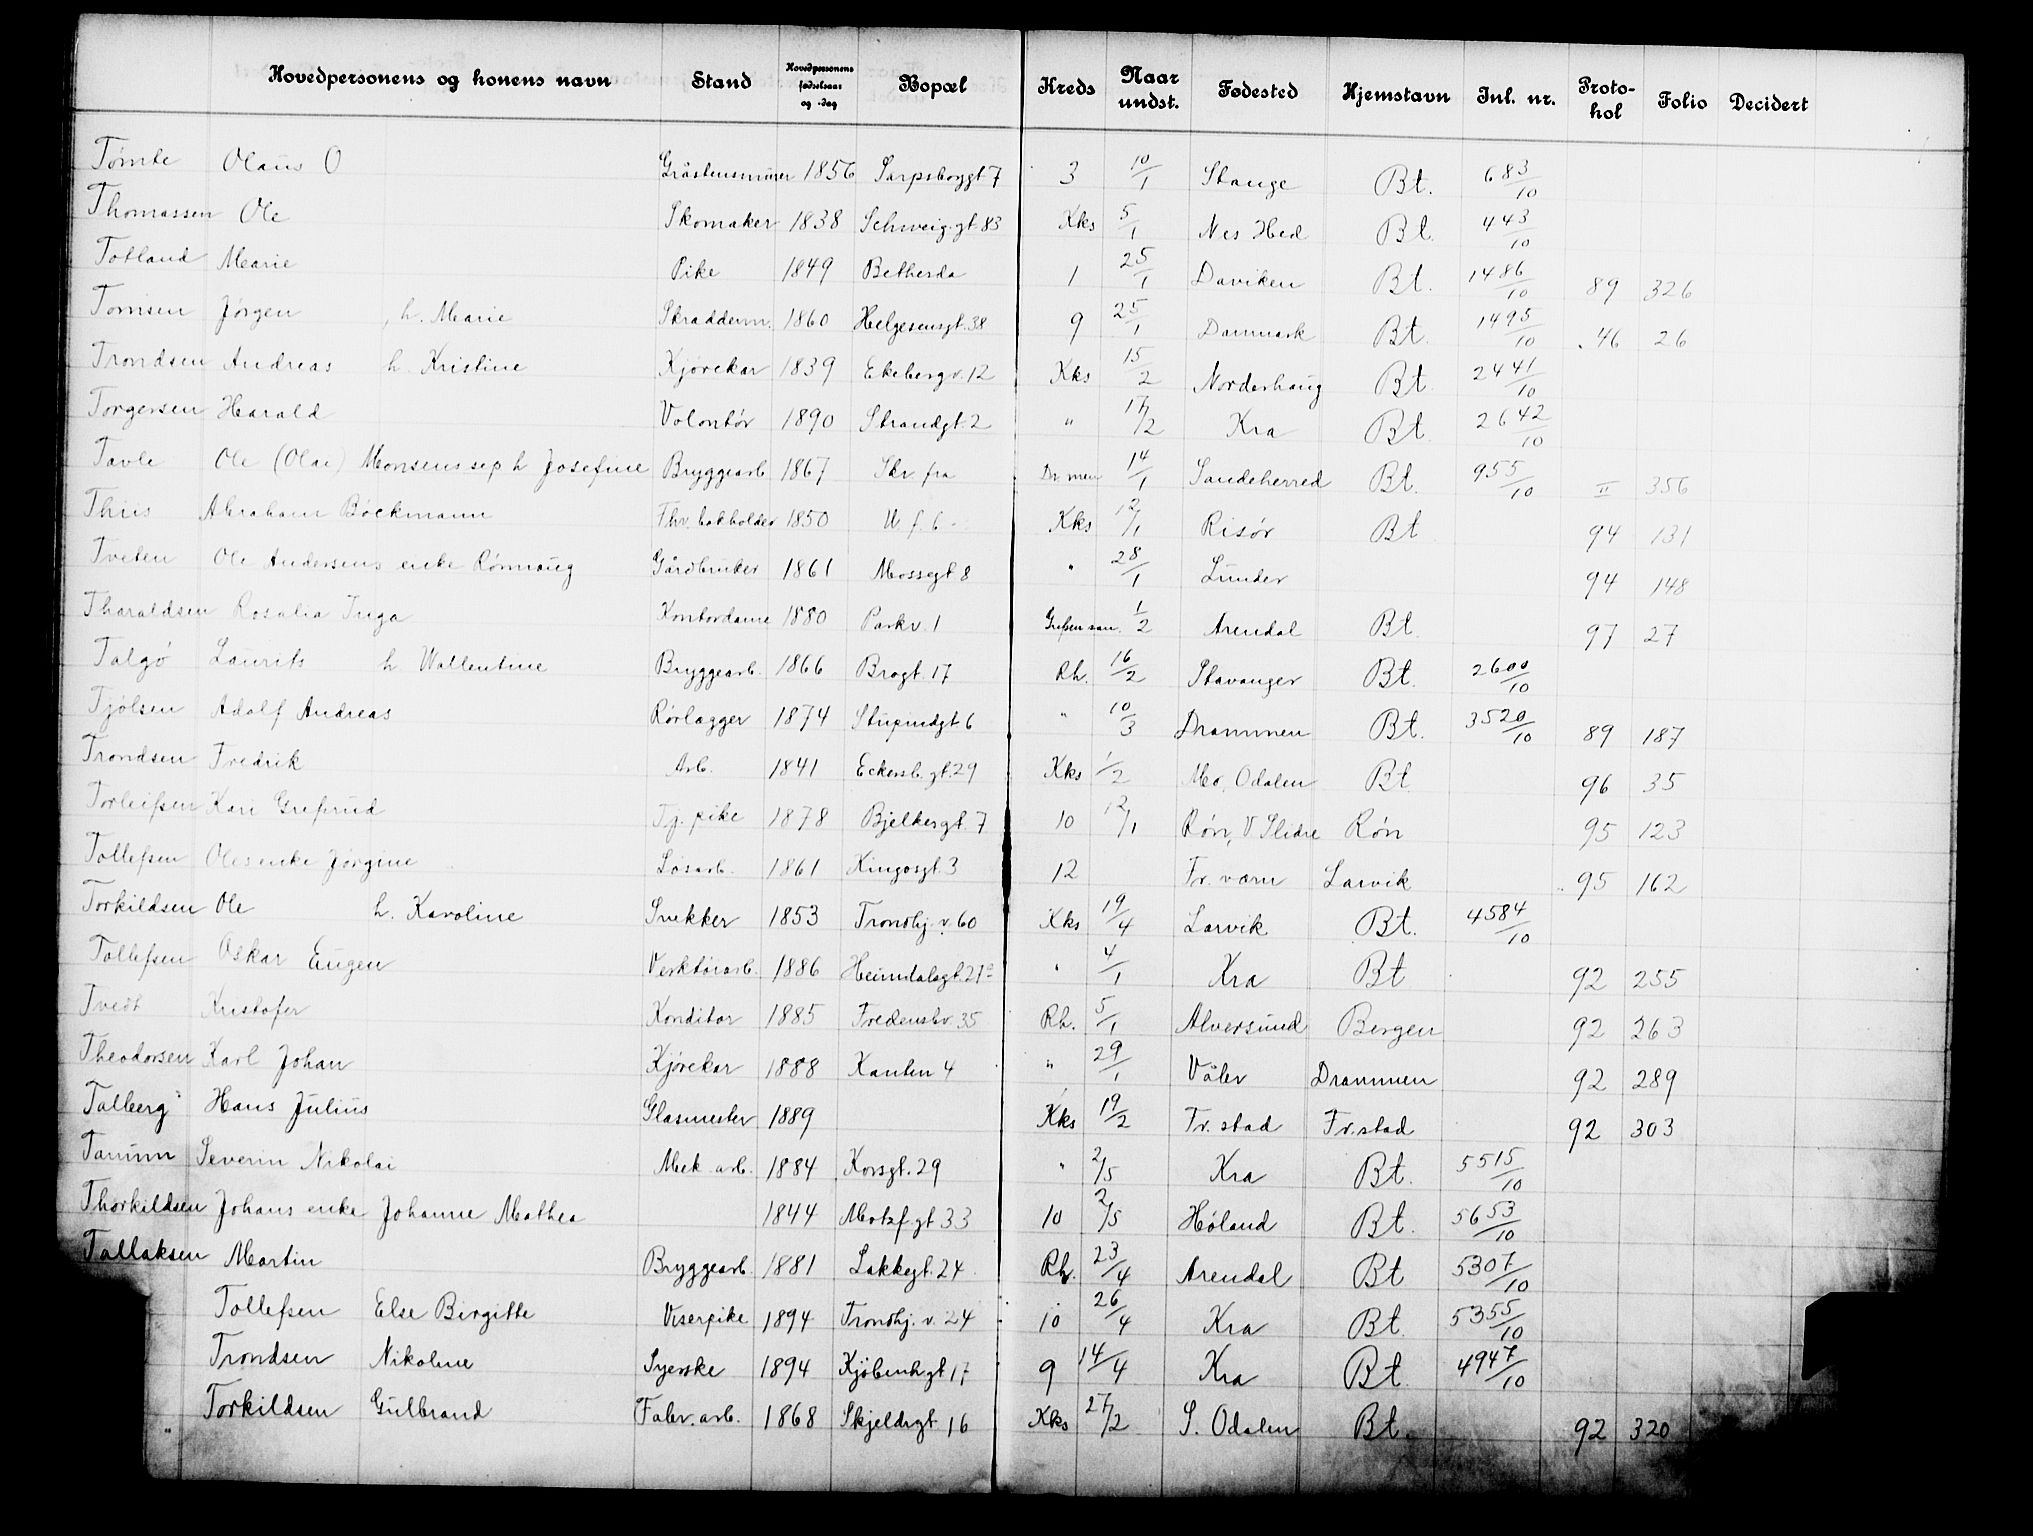 Hovedpersonens og konens navn Stand Hovedpersonens fødselsaar og -dag Bopæl Kreds Naar undst. Fødested Hjemstavn Jnl. nr. Proto-kol Folio Decidert
Tømte Olaus O Gråstensminer 1856 Sarpsborggt 7 3 10/1 Stange Bt. 683/10
Thomassen Ole Skomaker 1838 Schweig.gt 83 Kks 5/1 Nes Hed Bt. 443/10
Totland Marie Pike 1849 Bethesda 1 25/1 Daviken Bt. 1486/10 89 326
Tomsen Jørgen , h. Marie Skradderm. 1860 Helgesensgt. 38 9 25/1 Danmark Bt. 1495/10 46 26
Trondsen Andreas h. Kristine Kjørekar 1839 Ekeberg v. 12 Kks 15/2 Norderhaug Bt. 2441/10
Torgersen Harald Volontør 1890 Strandgt. 2 " 17/2 Kra Bt. 2642/10
Tavle Ole (Olai) Monsens sep h Josefine Bryggearb 1867 Skr fra Dr men 14/1 Sandeherred Bt. 955/10 II 356
Thiis Abraham Bøckmann Fhv. bokholder 1850 U. f. b. Kks 12/1 Risør Bt 94 131
Tveten Ole Andersens enke Rønnaug Gårdbruker 1861 Mossegt 8 " 28/1 Lunder 94 148
Tharaldsen Rosalia Inga Kontordame 1880 Parkv. 1 Grefsen san. 1/2 Arendal Bt. 97 27
Talgø Laurits h Wallentine Bryggearb. 1866 Brogt. 17 Rh. 16/2 Stavanger Bt. 2600/10
Tjølsen Adolf Andreas Rørlægger 1874 Stupendgt 6 " 10/3 Drammen Bt. 3520/10 89 187
Trondsen Fredrik Arb. 1841 Eckersb. gt. 29 Kks 1/2 Mo, Odalen Bt. 96 35
Torleifsen Kari Grefsrud Tj. pike 1878 Bjelkesgt. 7 10 12/1 Røn, V Slidre Røn 95 123
Tollefsen Oles enke Jørgine Løsarb. 1861 Kingosgt. 3 12 Fr. værn Larvik 95 162
Torkildsen Ole h. Karoline Snekker 1853 Trondhj. v. 60 Kks 19/4 Larvik Bt. 4584/10
Tollefsen Oskar Eugen Verktøiarb. 1886 Heimdalsgt. 21 " 4/1 Kra Bt 92 255
Tvedt Kristofer Konditor 1885 Fredensb v. 35 Rh. 5/1 Alversund Bergen 92 263
Theodorsen Karl Johan Kjørekar 1888 Kanten 4 " 29/1 Våler Drammen 92 289
Talberg Hans Julius Glasmester 1889 Kks 19/2 Fr. stad Fr. stad 92 303
Tanum Severin Nikolai Mek arb. 1884 Korsgt. 29 " 2/5 Kra Bt. 5515/10
Thorkildsen Johans enke Johanne Mathea 1844 Motzf. gt 33 10 2/5 Høland Bt. 5653/10
Tallaksen Martin Bryggearb. 1881 Lakkegt. 24 Rh. 23/4 Arendal Bt 5307/10
Tollefsen Else Birgitte Viserpike 1894 Trondhj. v. 24 10 26/4 Kra Bt. 5355/10
Trondsen Nikoline Syerske 1894 Kjøbenh.gt 17 9 14/4 Kra Bt. 4947/10
Torkildsen Gulbrand Fabr. arb. 1868 Skjeldrgt. 16 Kks 27/2 S. Odalen Bt. 92 320